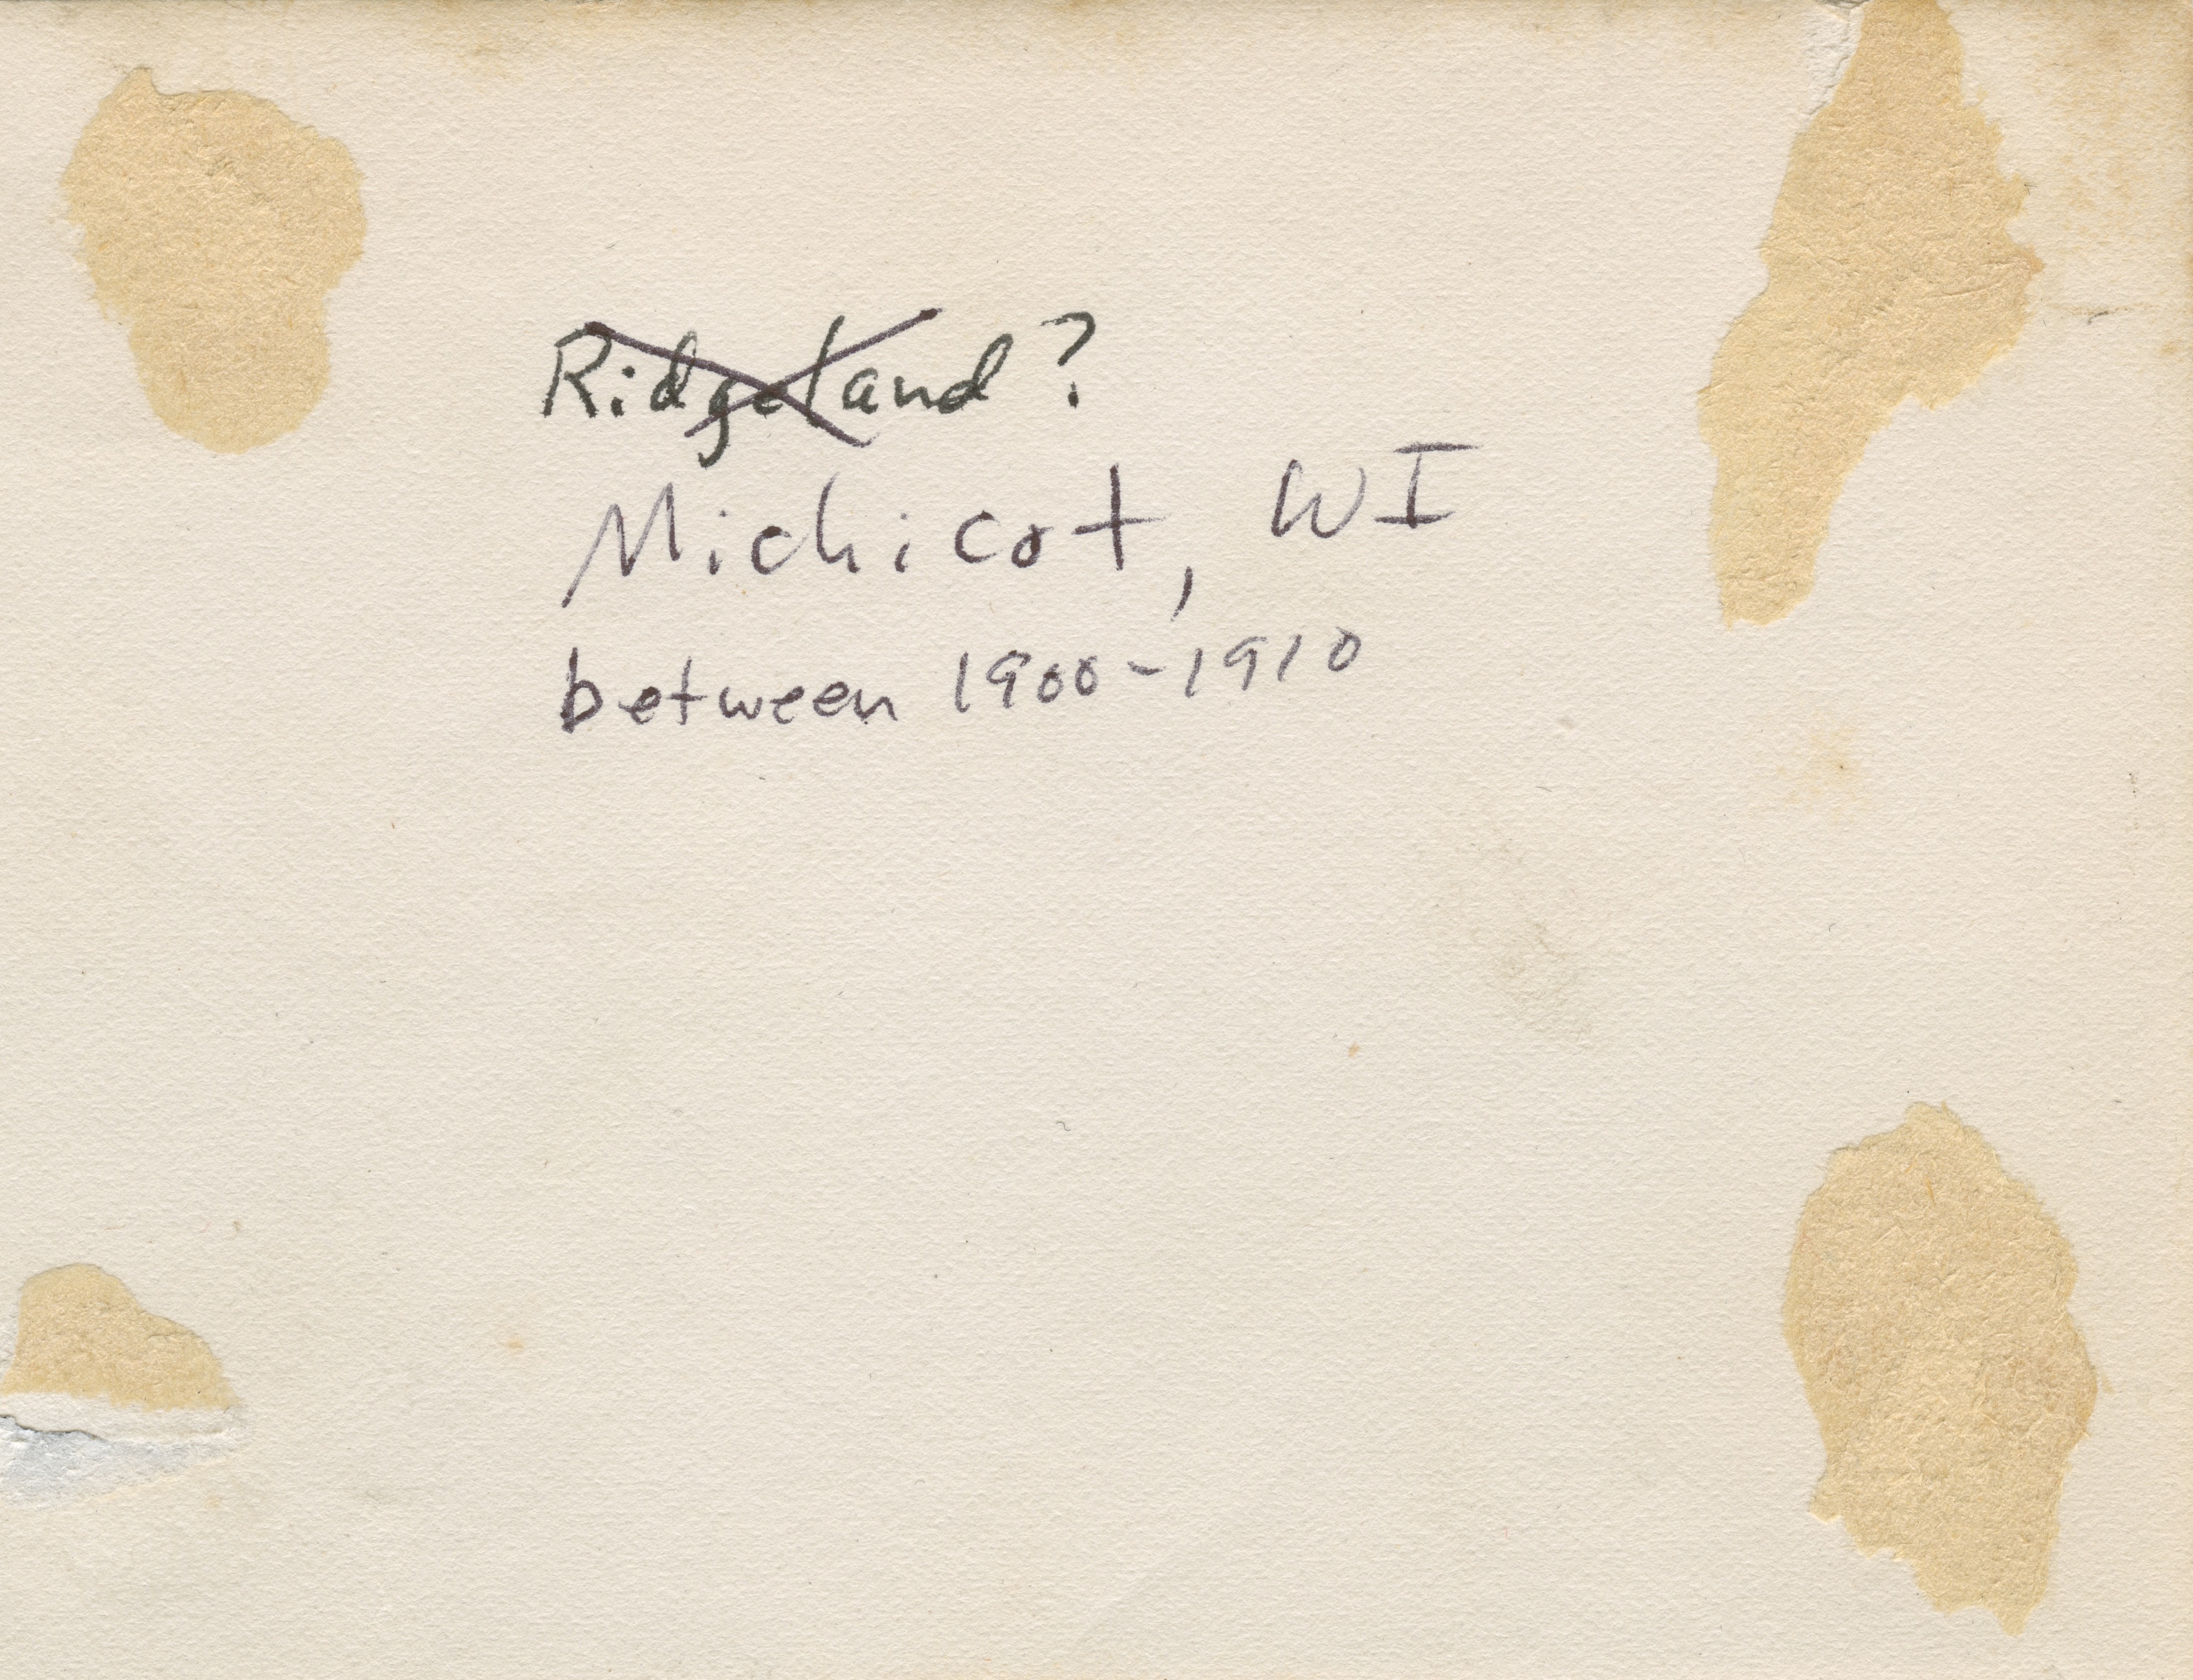 Ridgeland?
Michicot, WI
between 1900-1910